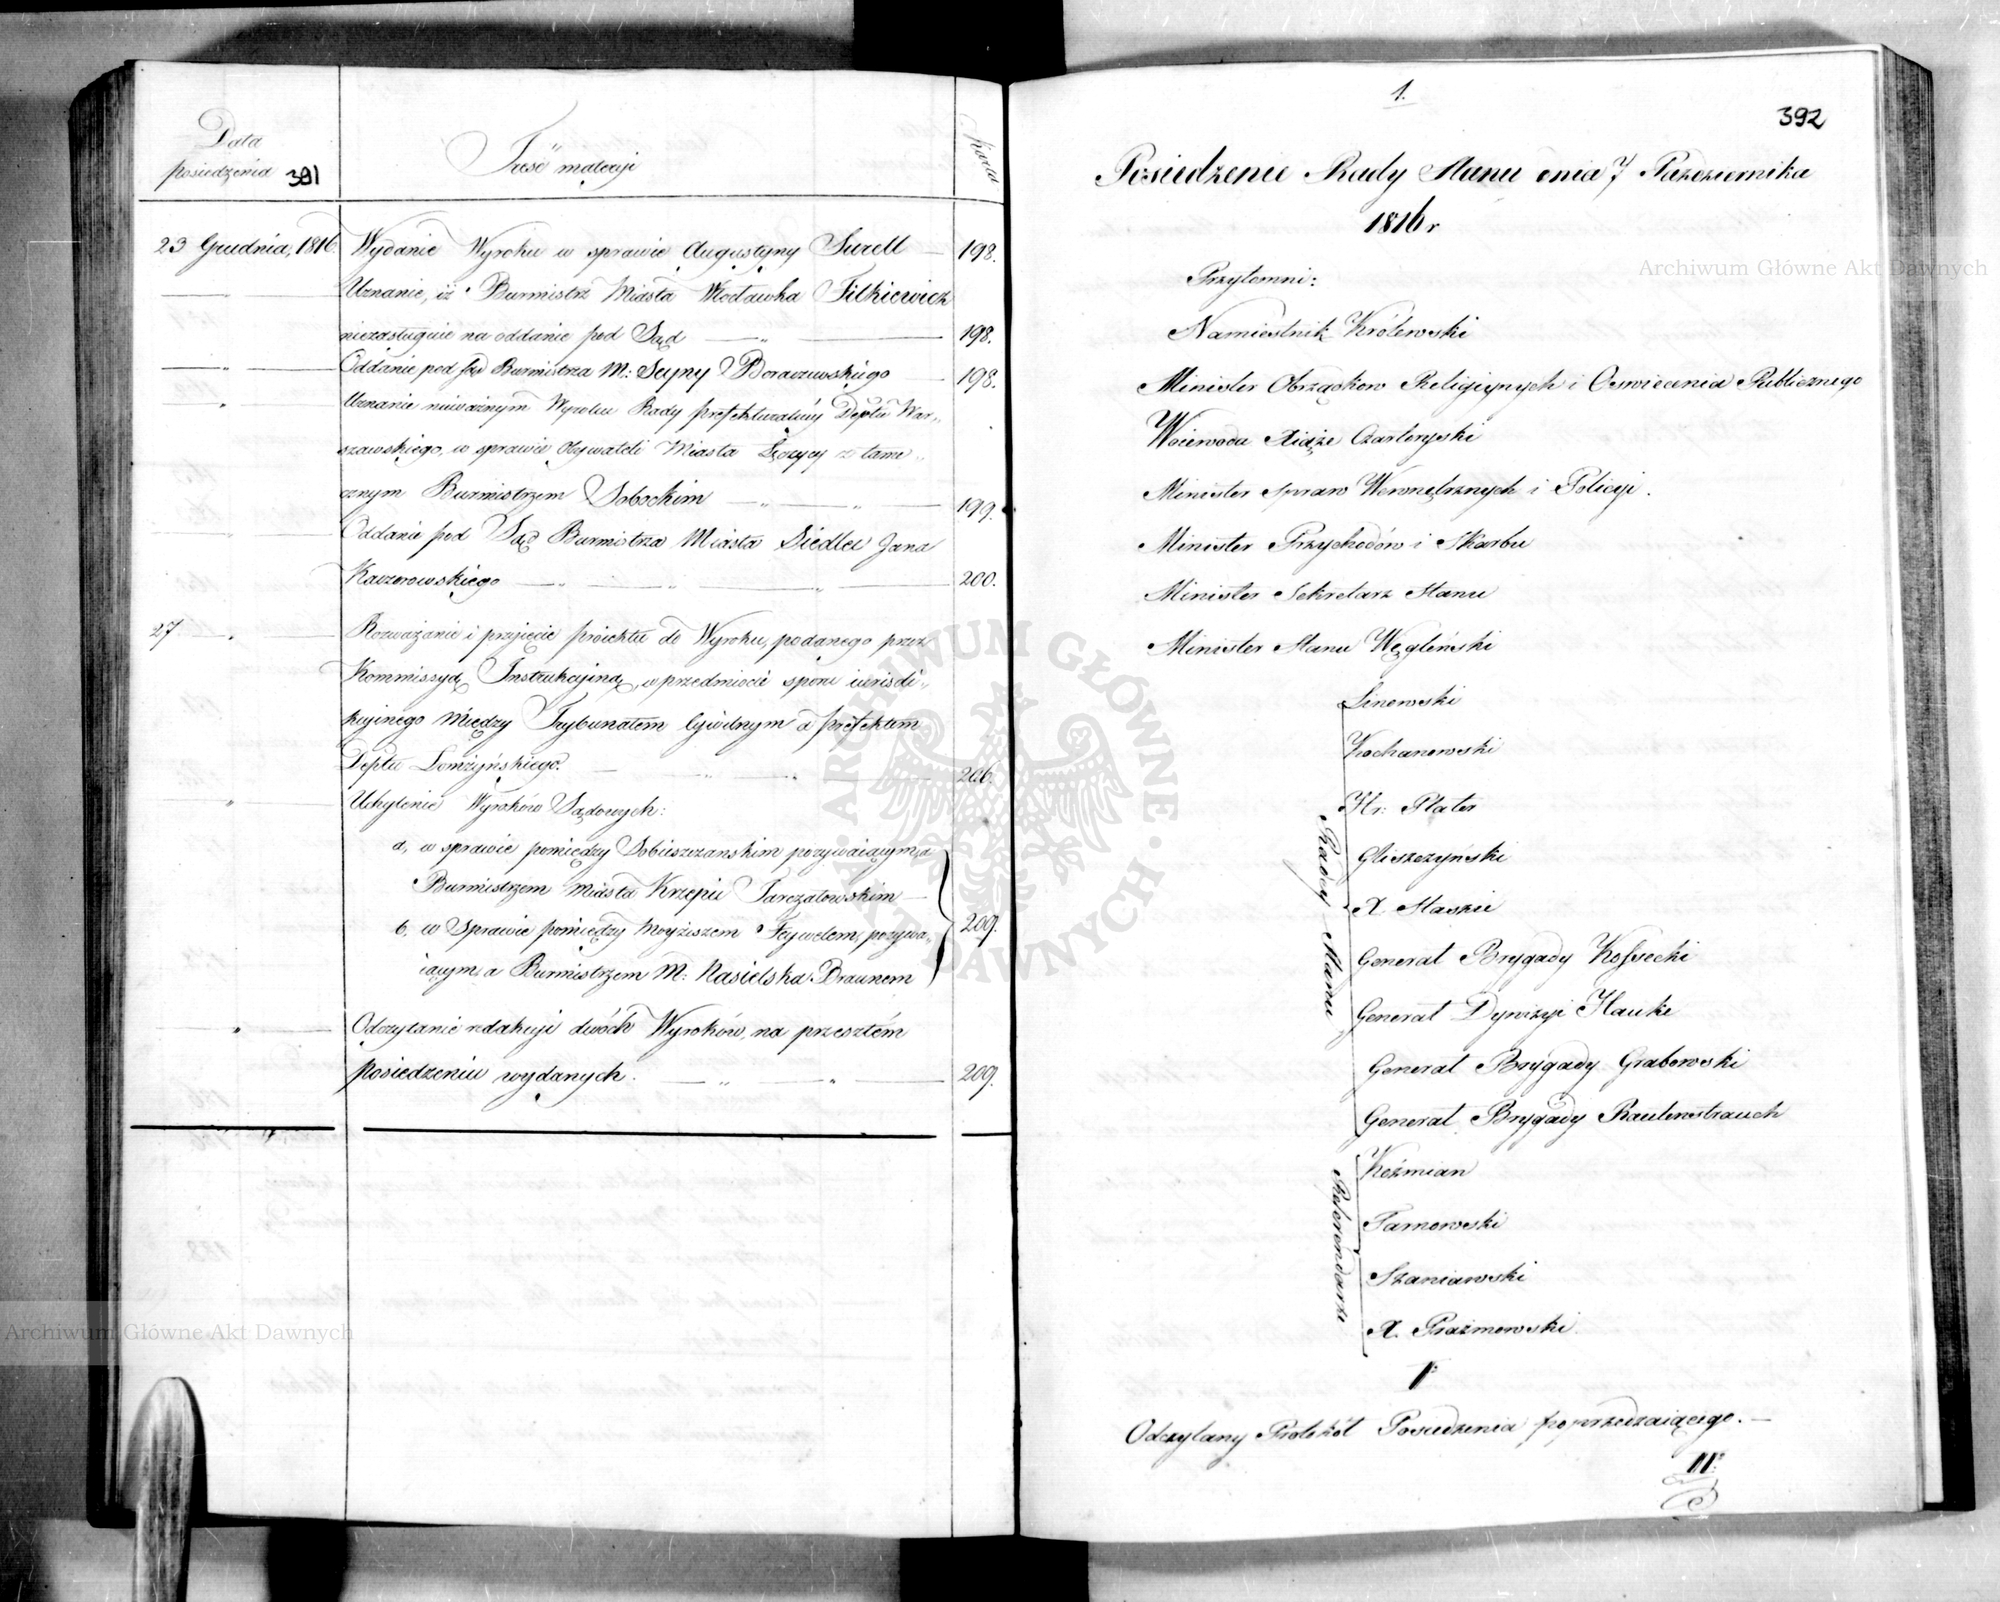 Data
posiedzenia 391
Treść materyi
Karta
23 Grudnia, 1816. Wydanie Wyroku w sprawie Augustyny Surell — 198.
— " — Uznanie, iż Burmistrz Miasta Włocławka Filkiewicz
niezasługuie na oddanie pod Sąd — " — 198.
— " — Oddanie pod sąd Burmistrza M: Seyny Boraczewskiego — 198.
" Uznanie nieważnym Wyroku Rady prefekturalnéy Deptu War„
szawskiego, w sprawie Obywateli Miasta Łęczycy z tame„
cznym Burmistrzem Sobockim — " — " — 199.
Oddanie pod Sąd Burmistrza Miasta Siedlec Jana
Kaczorowskiego — " — " — " — 200.
27 " — Rozważanie i przyięcie proiektu do Wyroku, podanego przez
Kommissyą Instrukcyiną, w przedmiocie sporu iurisdi„
kcyinego między Trybunałem Cywilnym a prefektem
Deptu Łomżyńskiego. — " — " — 206.
" — Uchylenie Wyroków Sądowych:
a, w sprawie pomiędzy Sobieszczanskim pozywaiącym, a
Burmistrzem Miasta Krzepic Tarczałowskim —
b, w Sprawie pomiędzy Moyżeszem Frywelem, pozywa„
iącym a Burmistrzem M: Nasielska Braunem 209.
" — Odczytanie redakcyi dwóch Wyroków, na przeszłém
posiedzeniu wydanych. — " — " — 209.
1.
392
Posiedzenie Rady Stanu dnia 7 Października
1816 r
Przytomni:
Namiestnik Królewski
Minister Obrządkow Religiynych i Oswiecenia Publicznego
Woiewoda Xiąże Czartoryski
Minister Spraw Wewnętrznych i Policyi.
Minister Przychodów i Skarbu
Minister Sekretarz Stanu
Minister Stanu Węgleński
Radcy Stanu
Linowski
Kochanowski
Hr: Plater
Gliszczyński
X. Staszic
Generał Brygady Kossecki
Generał Dywizyi Hauke
Generał Brygady Grabowski
Generał Brygady Rautenstrauch
Referendarze
Koźmian
Tarnowski
Szaniawski
X. Prażmowski
I°
Odczytany Protokół Posiedzenia poprzedzaiącego. —
II°
Archiwum Główne Akt Dawnych
Archiwum Główne Akt Dawnych
ARCHIWUM GŁÓWNE · AKT DAWNYCH ·